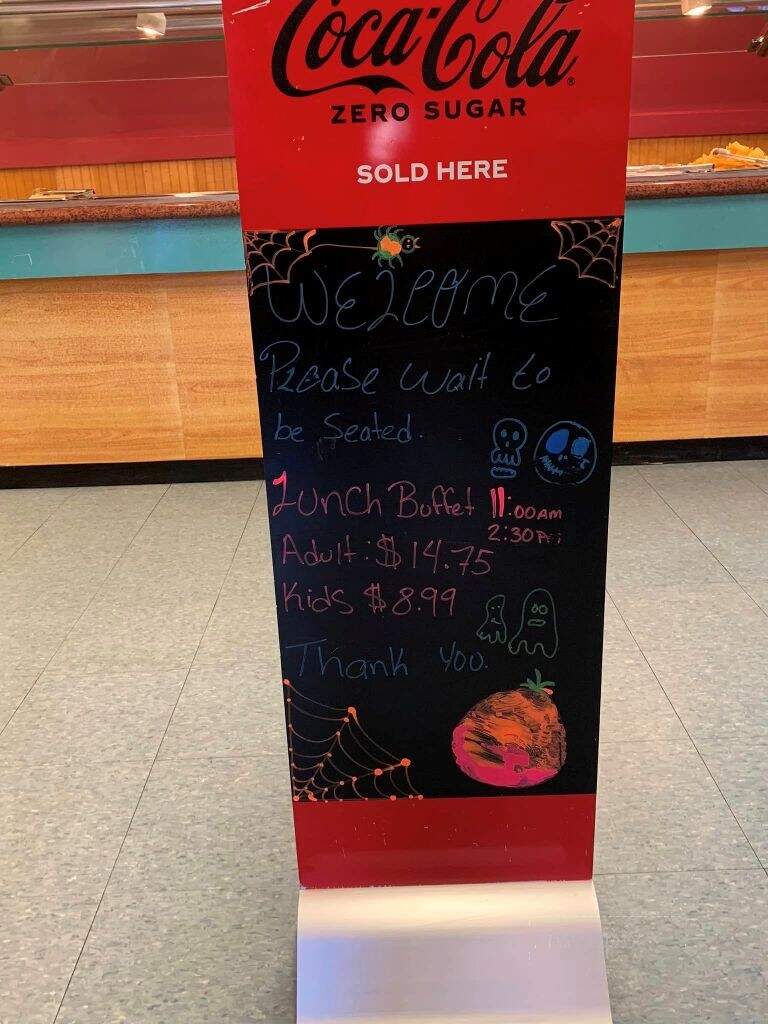 Coca-Cola®
ZERO SUGAR
SOLD HERE
WELCOME
Please wait to
be Seated.
Lunch Buffet 11:00AM
2:30PM
Adult: $14.75
Kids $8.99
Thank You.